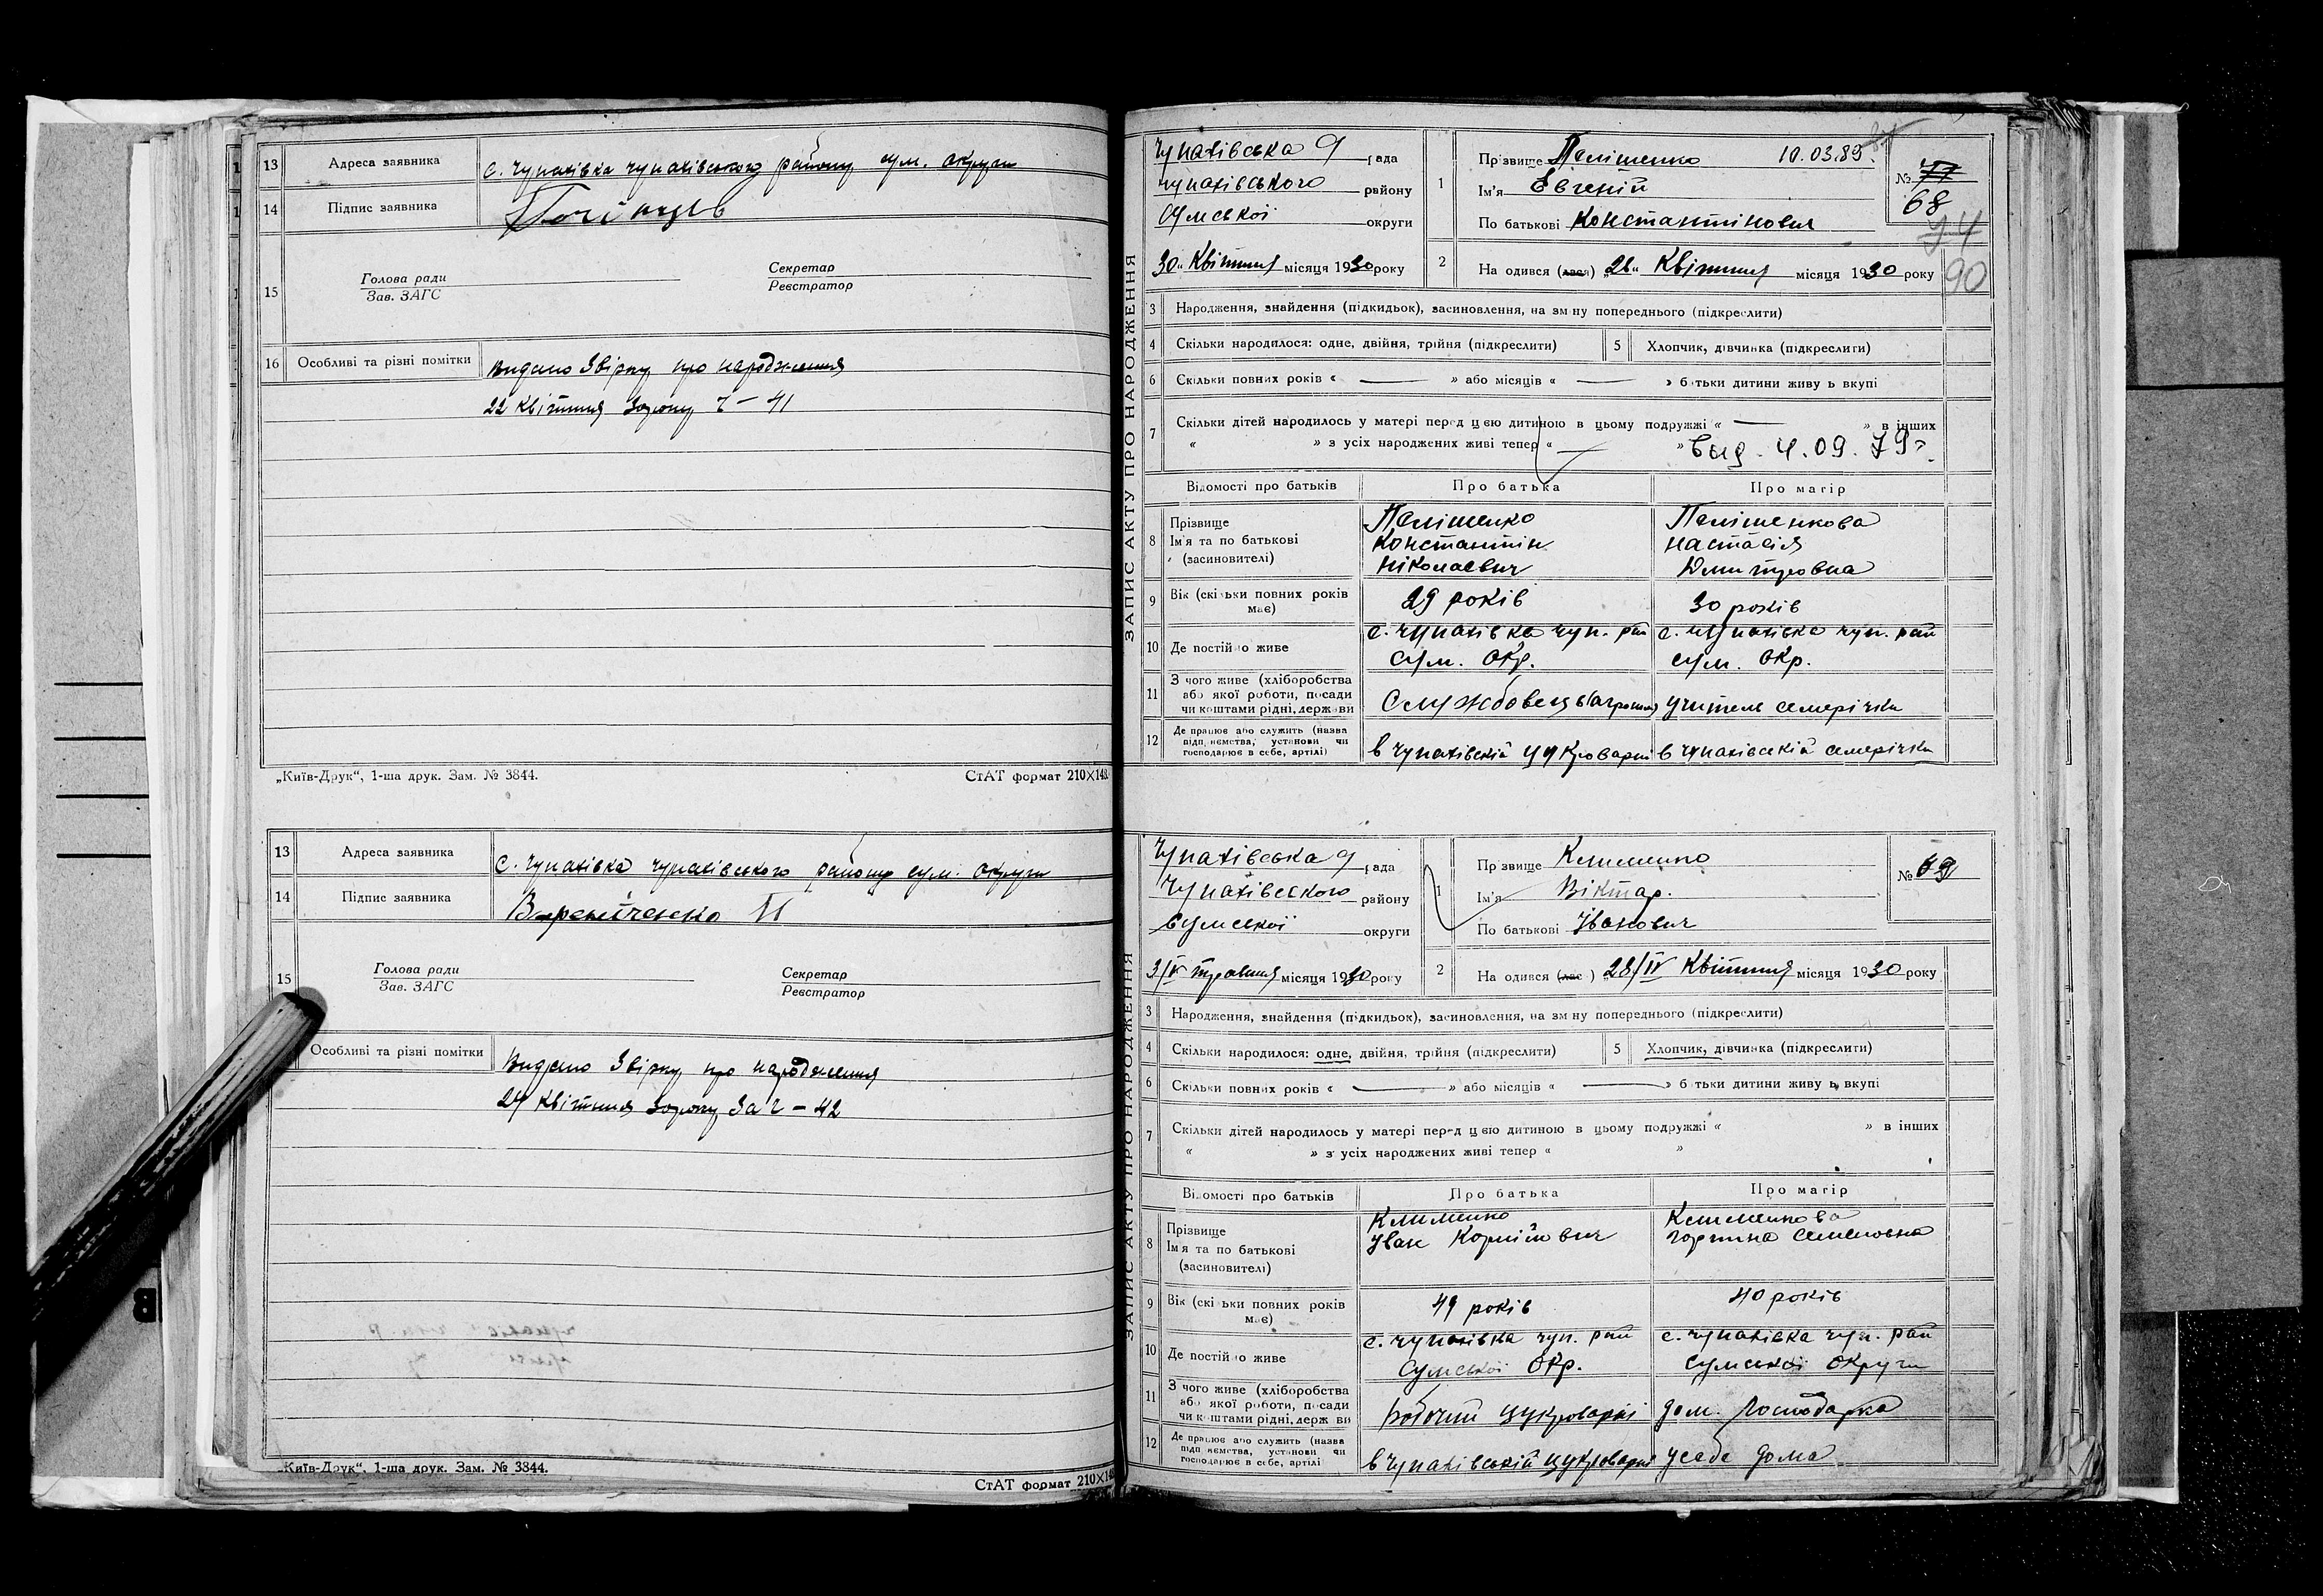 13 Адреса заявника с. Чупахівка чупахівського району сум. округи
14 Підпис заявника
15 Голова ради Секретар
Зав. ЗАГС Реєстратор
16 Особливі та різні помітки Видано Звірку про народження
22 Квітня 30 року 41
„Київ-Друк“, 1-ша друк. Зам. № 3844. СтАТ формат 210×148
13 Адреса заявника с. Чупахівка чупахівського району сум. округи
14 Підпис заявника
15 Голова ради Секретар
Зав. ЗАГС Реєстратор
Особливі та різні помітки Видано Звірку про народження
24 Квітня 30 року За ч – 42
„Київ-Друк“, 1-ша друк. Зам. № 3844.
СтАТ формат 210×148
ЗАПИС АКТУ ПРО НАРОДЖЕННЯ
Чупахівська рада
чупахівського району
Сумської округи
30 „ Квітня місяця 1930 року
1 Прізвище 10.03.89.
Ім'я Евгеній
По батькові Константінович
№ 77
68
94
90
2 На одився (лася) „28„ Квітня місяця 1930 року
3 Народження, знайдення (підкидьок), засиновлення, на зміну попереднього (підкреслити)
4 Скільки народилося: одне, двійня, трійня (підкреслити) 5 Хлопчик, дівчинка (підкреслити)
6 Скільки повних років « — » або місяців « — » батьки дитини живуть вкупі
7 Скільки дітей народилось у матері перед цією дитиною в цьому подружжі « — » в інших
« » з усіх народжених живі тепер « — » выд. 4.09.79г.
Відомості про батьків Про батька Про матір
8 Прізвище
Ім'я та по батькові Константін Настасія
(засиновителі) Ніколаевич Дмитровна
9 Вік (скільки повних років має) 29 років 30 років
10 Де постійно живе с. Чупахівка чуп. рай с. Чупахівка чуп. рай
сум. Окр. сум. Окр.
11 З чого живе (хліборобства або якої роботи, посади чи коштами рідні, держави Службовець учитель семерічки
12 Де працює або служить (назва підприємства, установи чи господарює в себе, артілі) в Чупахівській цукроварні в Чупахівскій семерічки
ЗАПИС АКТУ ПРО НАРОДЖЕННЯ
Чупахівська рада
Чупахівского району
Сумської округи
3/V травня місяця 1930 року
1 Прізвище Клименко
Ім'я Віктар.
По батькові Іванович
№ 69
2 На одився (лас ) „28/IV Квітня місяця 1930 року
3 Народження, знайдення (підкидьок), засиновлення, на зміну попереднього (підкреслити)
4 Скільки народилося: одне, двійня, трійня (підкреслити) 5 Хлопчик, дівчинка (підкреслити)
6 Скільки повних років « — » або місяців « — » батьки дитини живуть вкупі
7 Скільки дітей народилось у матері перед цією дитиною в цьому подружжі « » в інших
« » з усіх народжених живі тепер « »
Відомості про батьків Про батька Про матір
8 Прізвище Клименко Клименкова
Ім'я та по батькові Іван Корнійович Горпина Семеновна
(засиновителі)
9 Вік (скільки повних років має) 49 років 40 років
10 Де постійно живе с. Чупахівка чуп. рай с. Чупахівка чуп. рай
Сумської Окр. Сумської Округи
11 З чого живе (хліборобства або якої роботи, посади чи коштами рідні, держави Робочий цукроварні дом. Господарка
12 Де працює або служить (назва підприємства, установи чи господарює в себе, артілі в Чупахівській цукроварні усебе дома